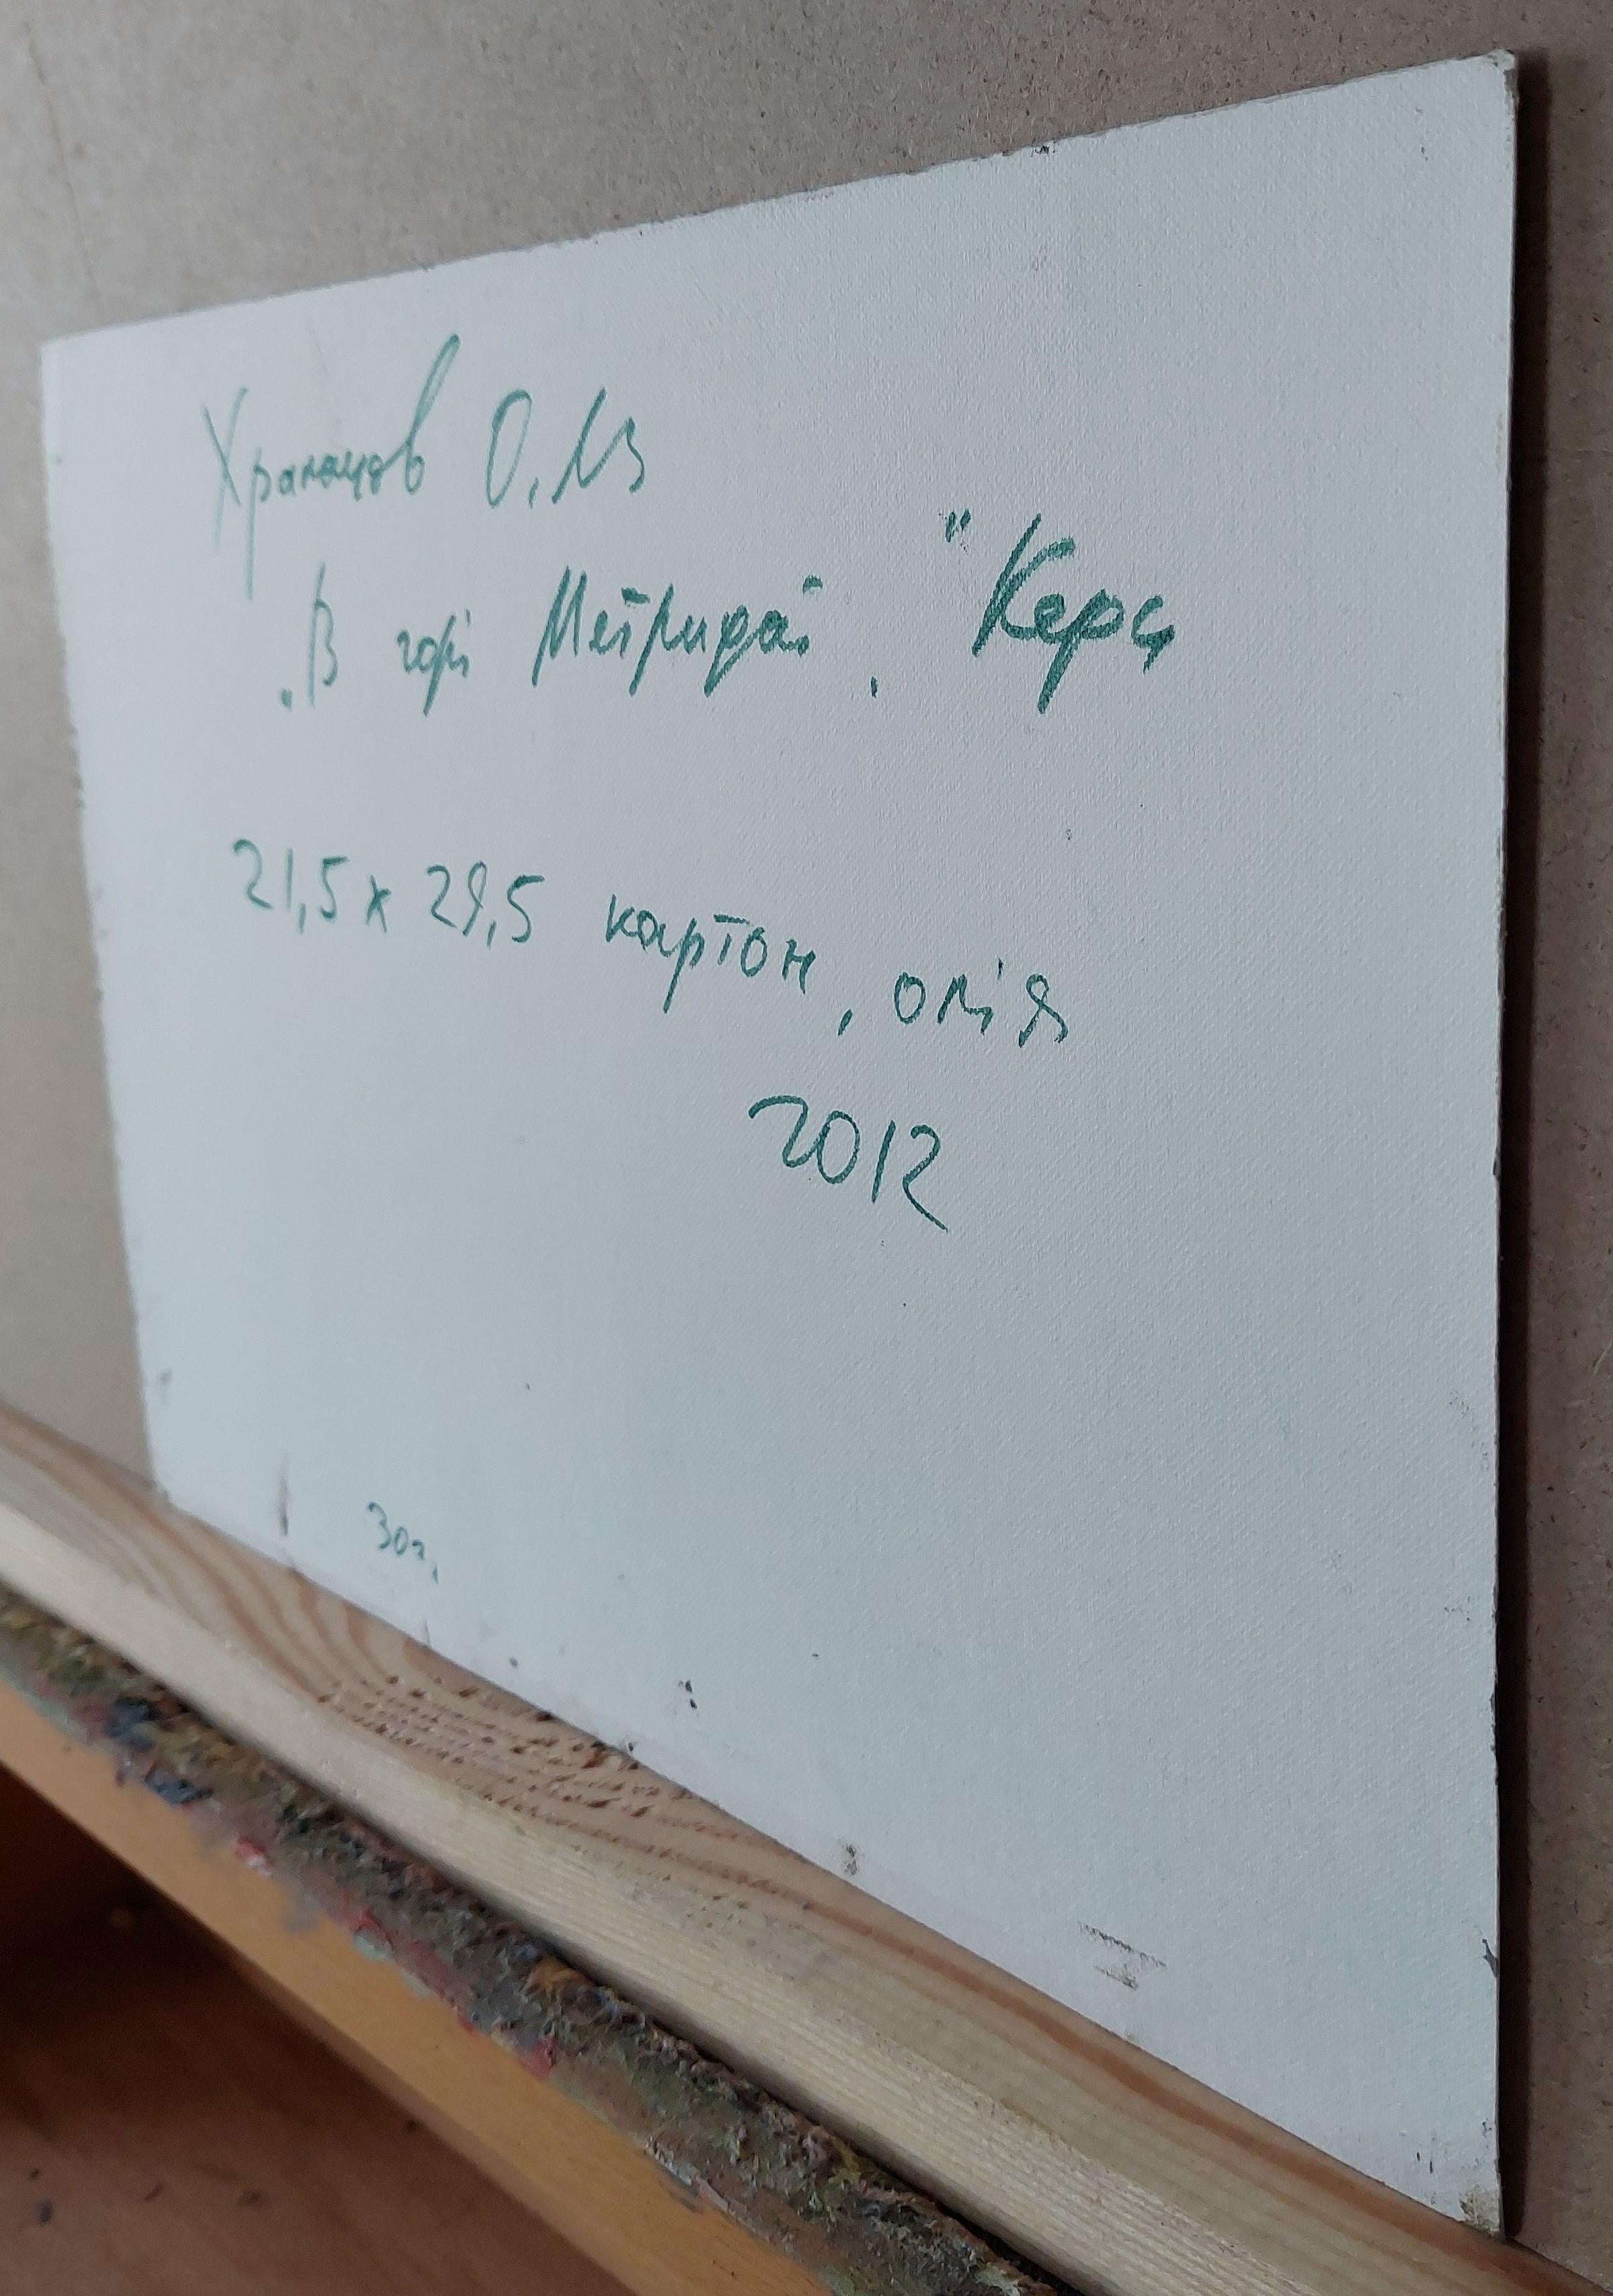 Храпачов О. М
„В горі Метридаті, "Керч
21,5 х 29,5 картон, олія
2012